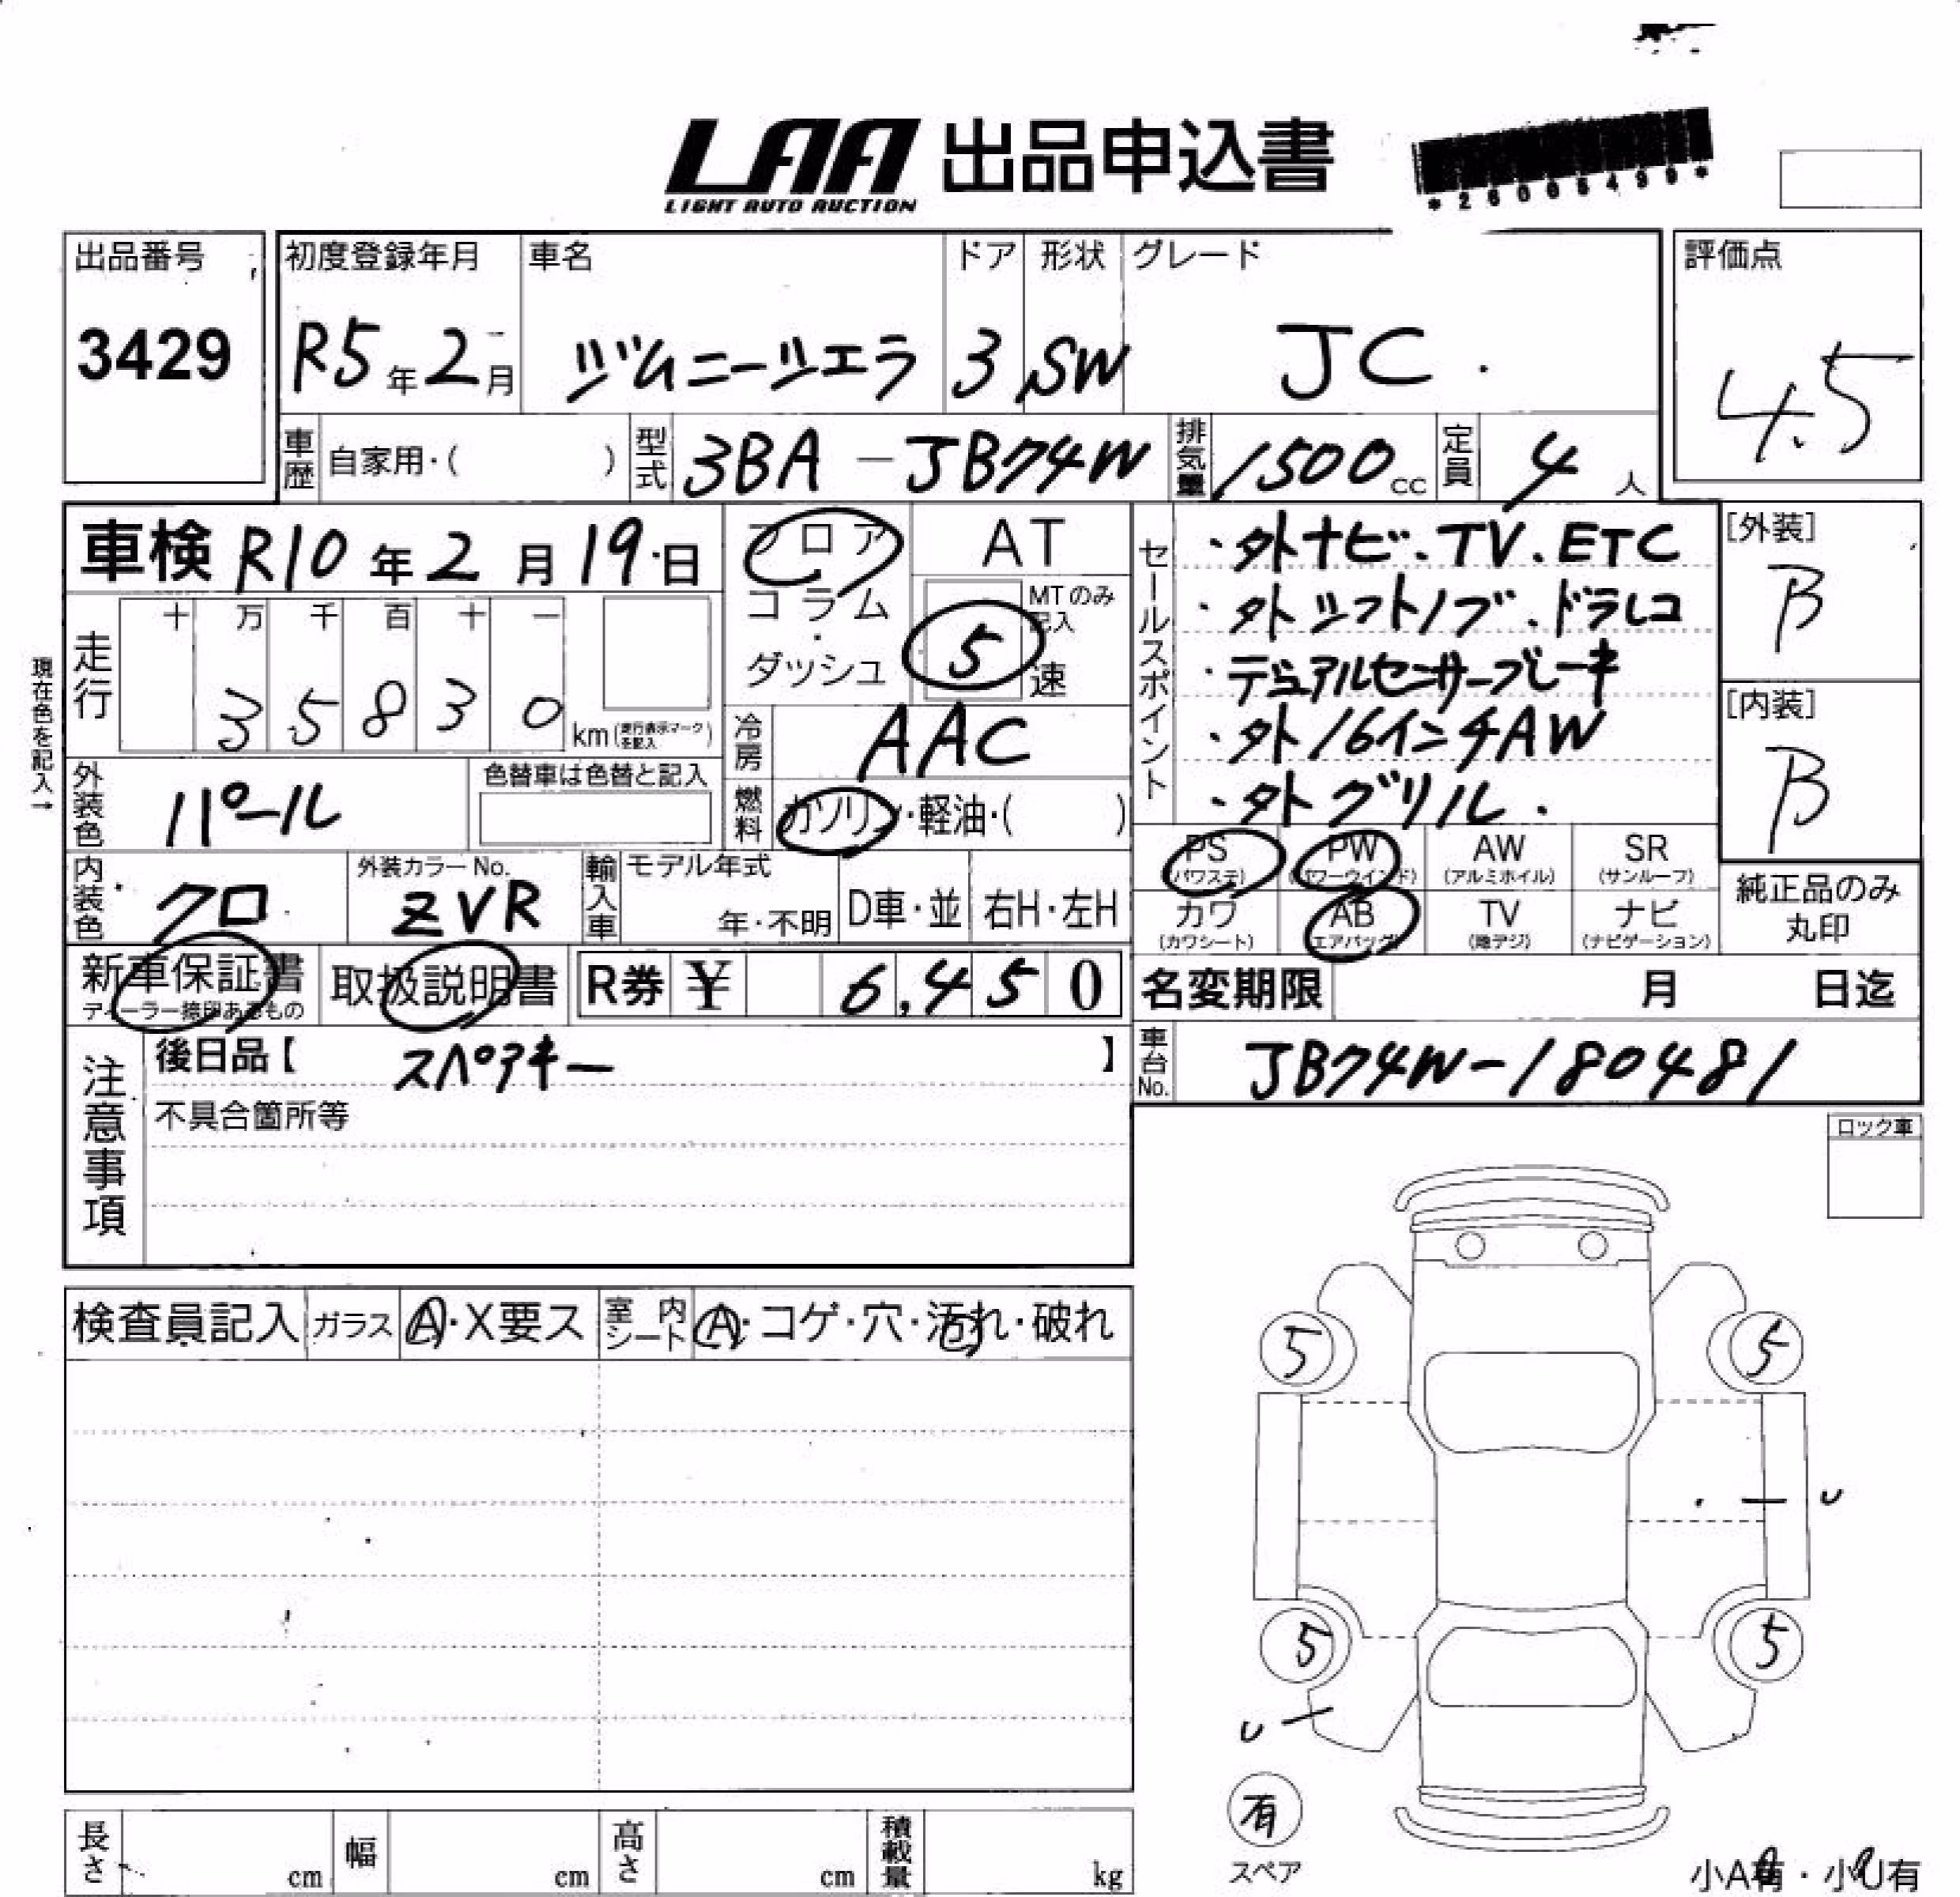 LAA 出品申込書
LIGHT AUTO AUCTION
*26005499*
出品番号
3429
初度登録年月
R5年2月
車名
ジムニーシエラ
ドア
3
形状
SW
グレード
JC.
評価点
4.5
車歴 自家用・( )
型式 3BA-JB74W
排気量 1500cc
定員 4人
車検 R10年2月19日
フロア・コラム・ダッシュ
AT
MTのみ記入
5速
現在色を記入→
走行
十 万 千 百 十 一
3 5 8 3 0 km(走行表示マークを記入)
冷房 AAC
燃料 ガソリン・軽油・( )
外装色 パール
色替車は色替と記入
内装色 クロ
外装カラーNo.
ZVR
輸入車 モデル年式
年・不明
D車・並
右H・左H
セールスポイント
・外ナビ.TV.ETC
・外シフトノブ.ドラレコ
・デュアルセンサーブレーキ
・外16インチAW
・外グリル.
[外装]
B
[内装]
B
PS (パワステ)
PW (パワーウインド)
AW (アルミホイル)
SR (サンルーフ)
カワ (カワシート)
AB (エアバッグ)
TV (地デジ)
ナビ (ナビゲーション)
純正品のみ
丸印
新車保証書
ディーラー捺印あるもの
取扱説明書
R券 ¥ 6,450
名変期限 月 日迄
車台No. JB74W-180481
注意事項
後日品【 スペアキー 】
不具合箇所等
ロック車
検査員記入
ガラス A・X要ス
室内シート A・コゲ・穴・汚れ・破れ
5
5
U
5
5
U
有
スペア
小A有・小U有
長さ cm
幅 cm
高さ cm
積載量 kg